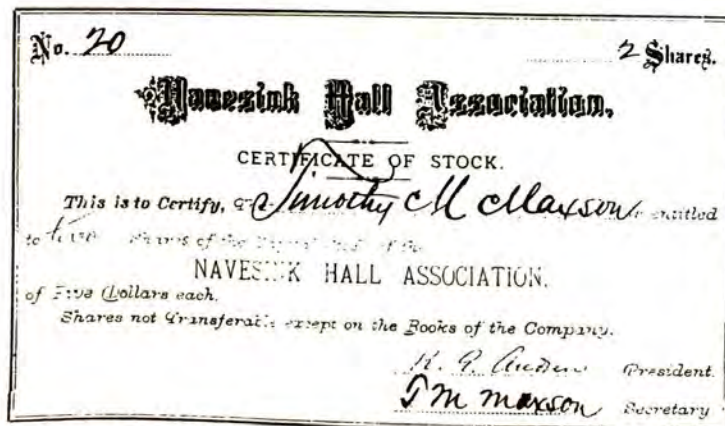 No. 20 2 Shares.
Navesink Hall Association.
CERTIFICATE OF STOCK.
This is to Certify, Timothy M Maxson entitled
to two Shares of the of the
NAVESINK HALL ASSOCIATION.
of Five Dollars each.
Shares not Transferable except on the Books of the Company.
President.
T M Maxson Secretary